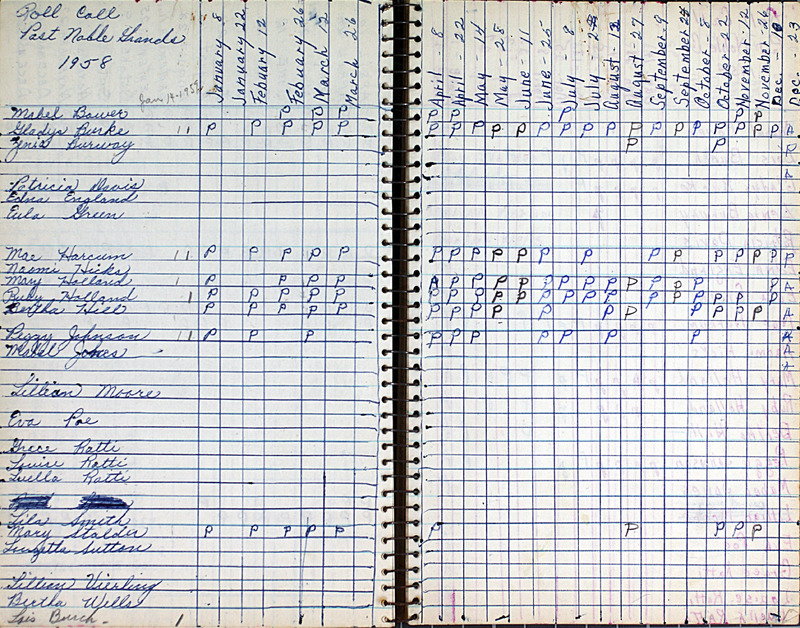 Roll Call
Past Noble Grands
1958
Jan. 14-1958
January 8
January 22
Febuary 12
Febuary 26
March 12
March 26
April - 8
April - 22
May - 14
May - 28
June - 11
June - 25
July - 8
July - 23
August - 13
August - 27
September 9
September 23
October - 8
October - 22
November - 12
November - 26
Dec. - 10
Dec - 23
Mabel Bower P P P P P P
Gladys Burke 11 P P P P P P P P P P P P P P P P P P P P P P P A
Burway P P P
A
Patricia Davis
Edna England
Eula Green
Mae Harcum 11 P P P P P P P P P P P P P P P P P P P
Naomi Hicks
Mary Holland 11 P P P A P P P P P P P P P P P P P A
Ruby Holland 1 P P P P P P P P P P P P P P P P P P P P
Bertha Hill P P P P P P P P P P P P P P P A
Peggy Johnson 11 P P P P P P P P P P A
Mabel Jones A
A
Lillian Moore
Eva Poe
Grece Ratti
Louise Ratti
Luella Ratti
Lila Smith
Mary Stalder P P P P P P P P P P
Louzetta Sutton
Lillian Vierling
Bertha Wells
Lois Bouch - 1